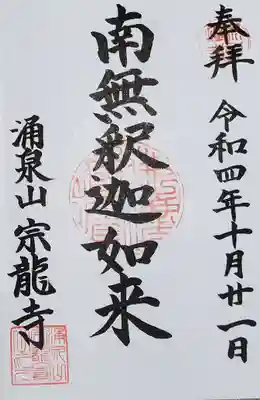 奉拝 令和四年十月廿一日
南無釈迦如来
涌泉山 宗龍寺